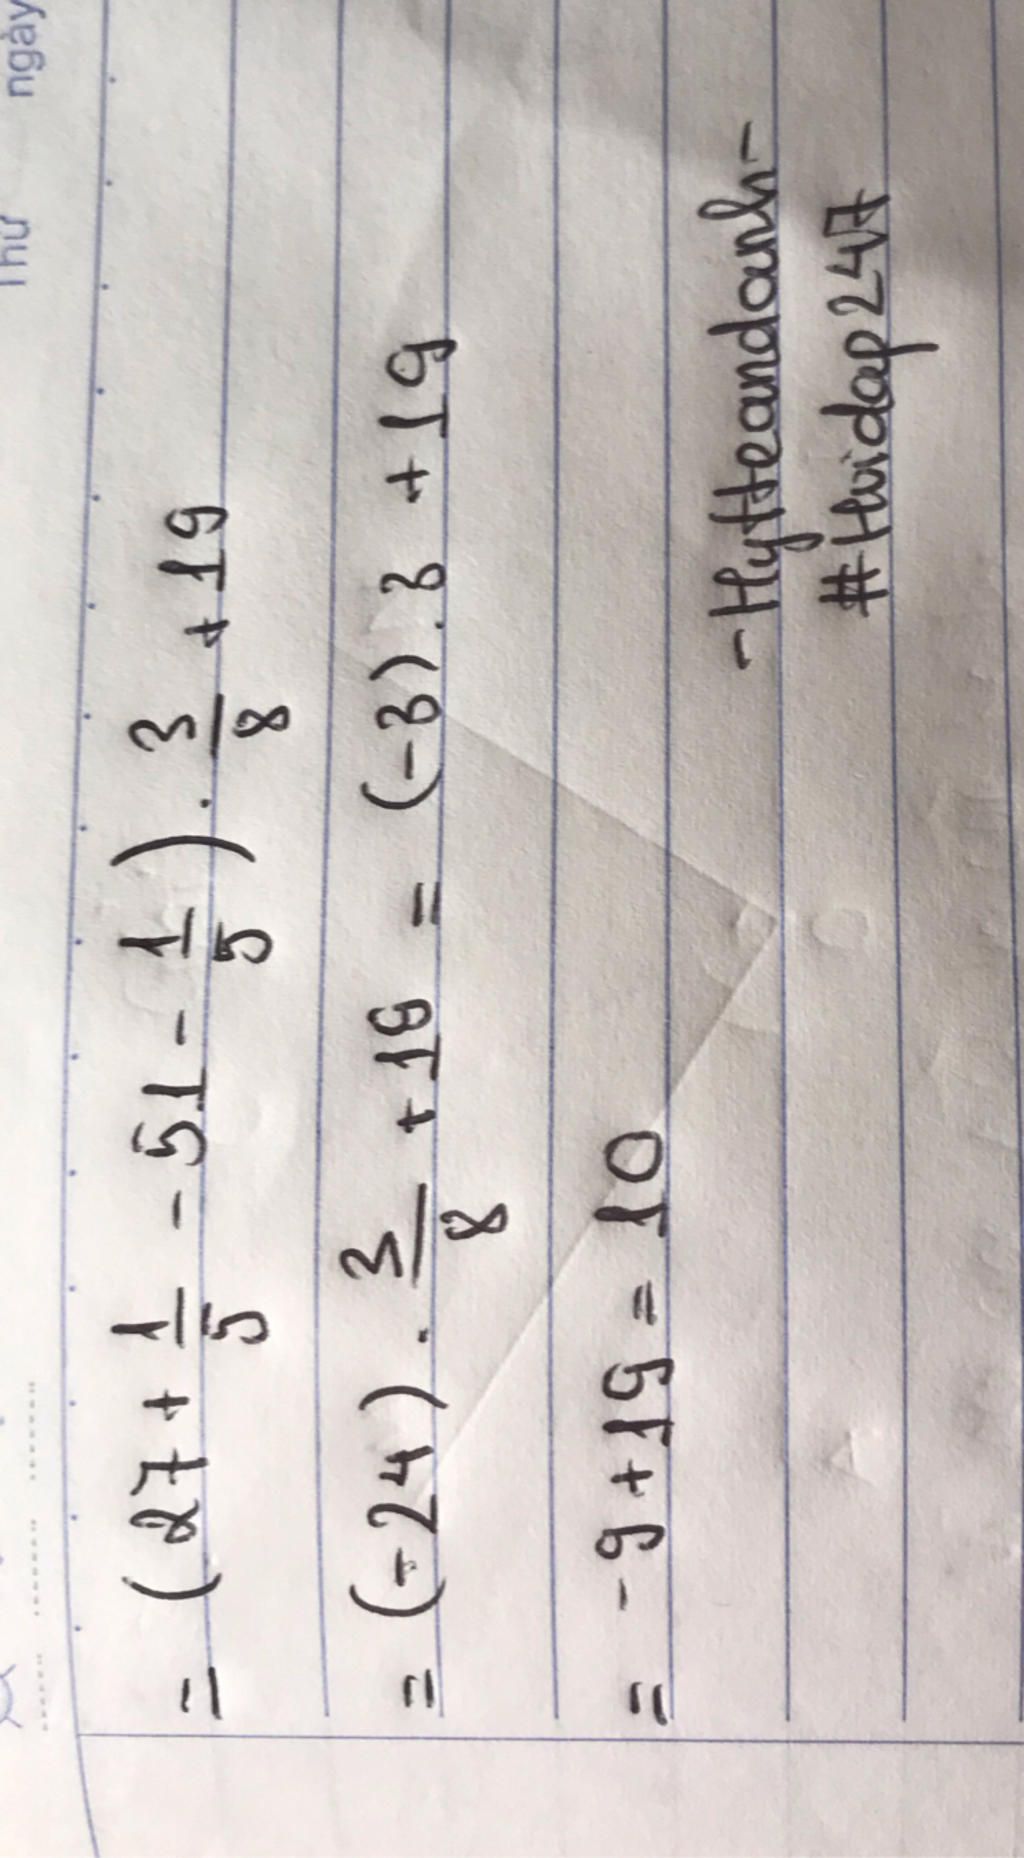 Thứ ngày
= (27 + 1/5 - 51 - 1/5) . 3/8 + 19
= (-24) . 3/8 + 19 = (-3) . 3 + 19
= -9 + 19 = 10
-Hytteandanh-
#Hoidap247